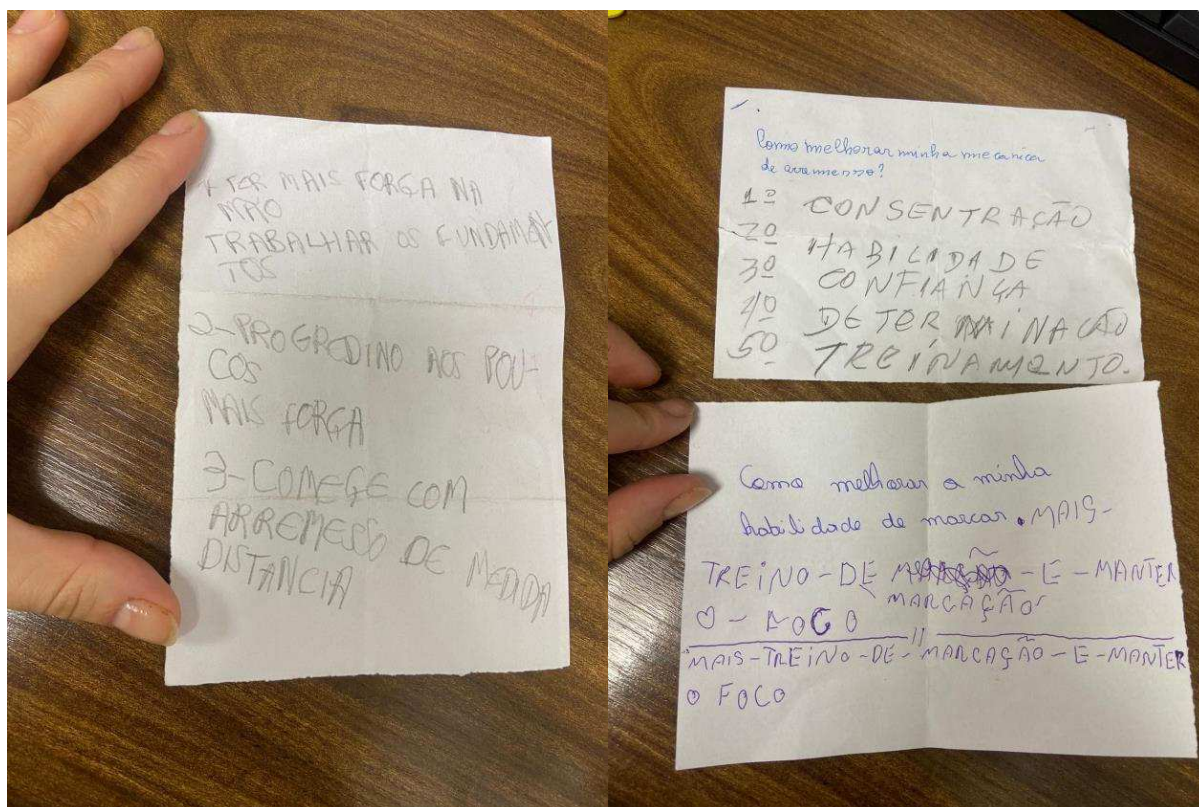 1 TER MAIS FORGA NA
MÃO
TRABALHAR OS FUNDAMEN
TOS
2-PROGREDINO AOS POU-
COS
MAIS FORGA
3-COMEGE COM
ARREMESSO DE MEDIDA
DISTANCIA
Como melhorar minha mecanica
de arremesso?
1º CONSENTRAÇÃO
2º HABILIDADE
3º CONFIANÇA
4º DETERMINAÇÃO
5º TREINAMENTO.
Como melhorar a minha
habilidade de marcar. MAIS-
TREINO-DE -E-MANTER
MARCAÇÃO
O-FOCO
MAIS-TREINO-DE-MARCAÇÃO-E-MANTER
O FOCO